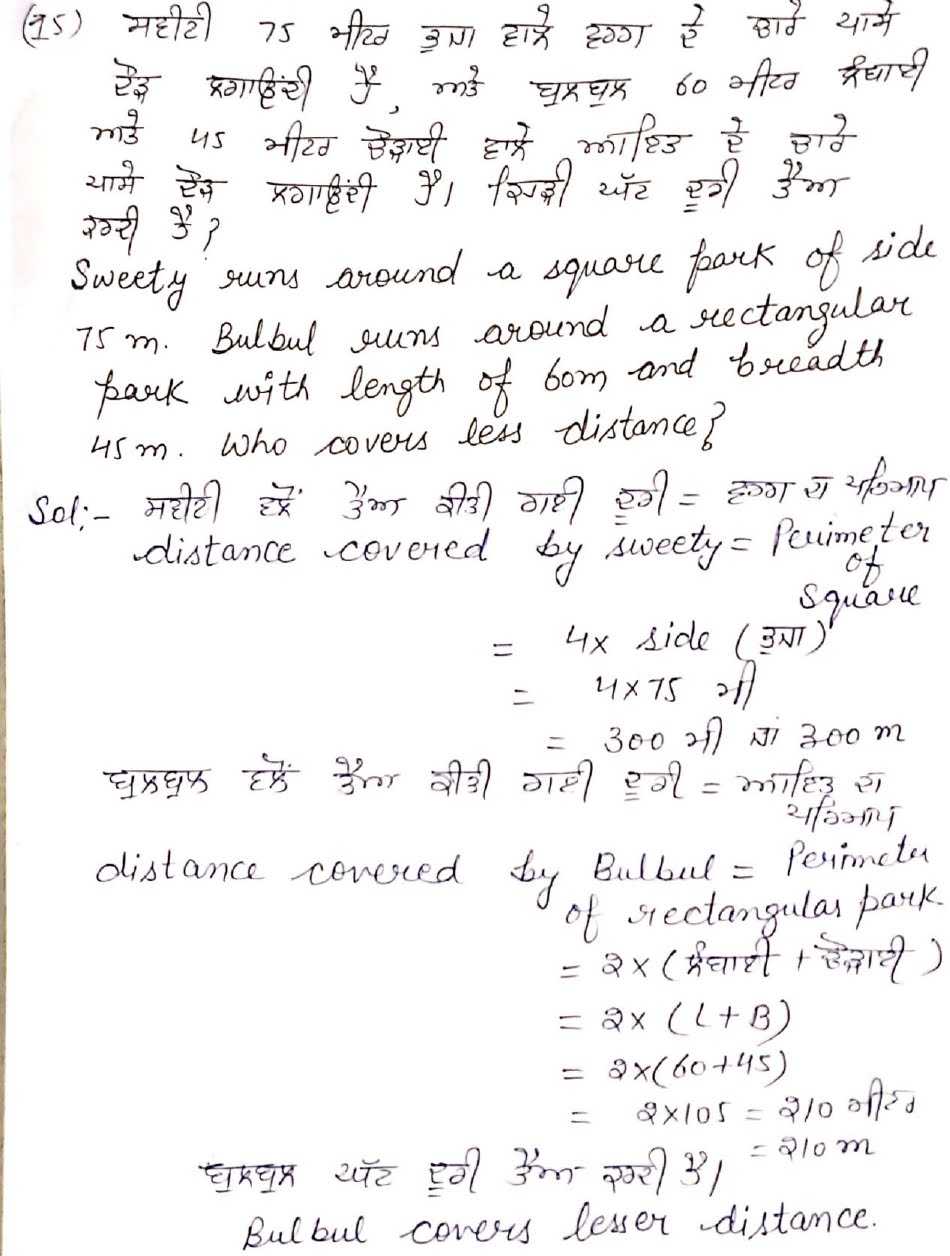 (15) ਸਵੀਟੀ 75 ਮੀਟਰ ਭੁਜਾ ਵਾਲੇ ਵਰਗ ਦੇ ਚਾਰੇ ਪਾਸੇ
ਦੌੜ ਲਗਾਉਂਦੀ ਹੈ, ਅਤੇ ਬੁਲਬੁਲ 60 ਮੀਟਰ ਲੰਬਾਈ
ਅਤੇ 45 ਮੀਟਰ ਚੌੜਾਈ ਵਾਲੇ ਆਇਤ ਦੇ ਚਾਰੇ
ਪਾਸੇ ਦੌੜ ਲਗਾਉਂਦੀ ਹੈ। ਕਿਹੜੀ ਘੱਟ ਦੂਰੀ ਤੈਅ
ਕਰਦੀ ਹੈ?
Sweety runs around a square park of side
75 m. Bulbul runs around a rectangular
park with length of 60m and breadth
45 m. Who covers less distance?
Sol:- ਸਵੀਟੀ ਵਲੋਂ ਤੈਅ ਕੀਤੀ ਗਈ ਦੂਰੀ = ਵਰਗ ਦਾ ਪਰਿਮਾਪ
distance covered by sweety = Perimeter
of
Square
= 4x side (ਭੁਜਾ)
= 4x75 ਮੀ
= 300 ਮੀ ਜਾਂ 300 m
ਬੁਲਬੁਲ ਵਲੋਂ ਤੈਅ ਕੀਤੀ ਗਈ ਦੂਰੀ = ਆਇਤ ਦਾ
ਪਰਿਮਾਪ
distance covered by Bulbul = Perimeter
of rectangular park
= 2x (ਲੰਬਾਈ + ਚੌੜਾਈ)
= 2x (L+B)
= 2x(60+45)
= 2x105 = 210 ਮੀਟਰ
= 210 m
ਬੁਲਬੁਲ ਘੱਟ ਦੂਰੀ ਤੈਅ ਕਰਦੀ ਹੈ।
Bulbul covers lesser distance.